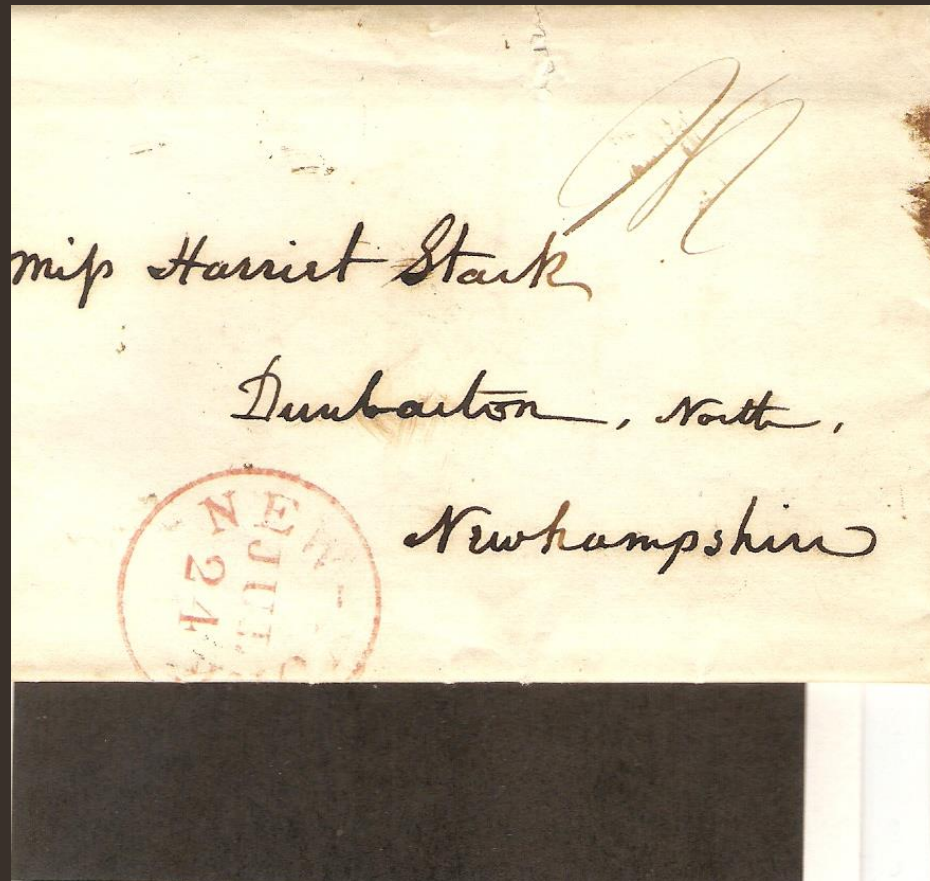 Miſs Harriet Stark
Dunbarton, North,
Newhampshire
NEW-
JUL
24